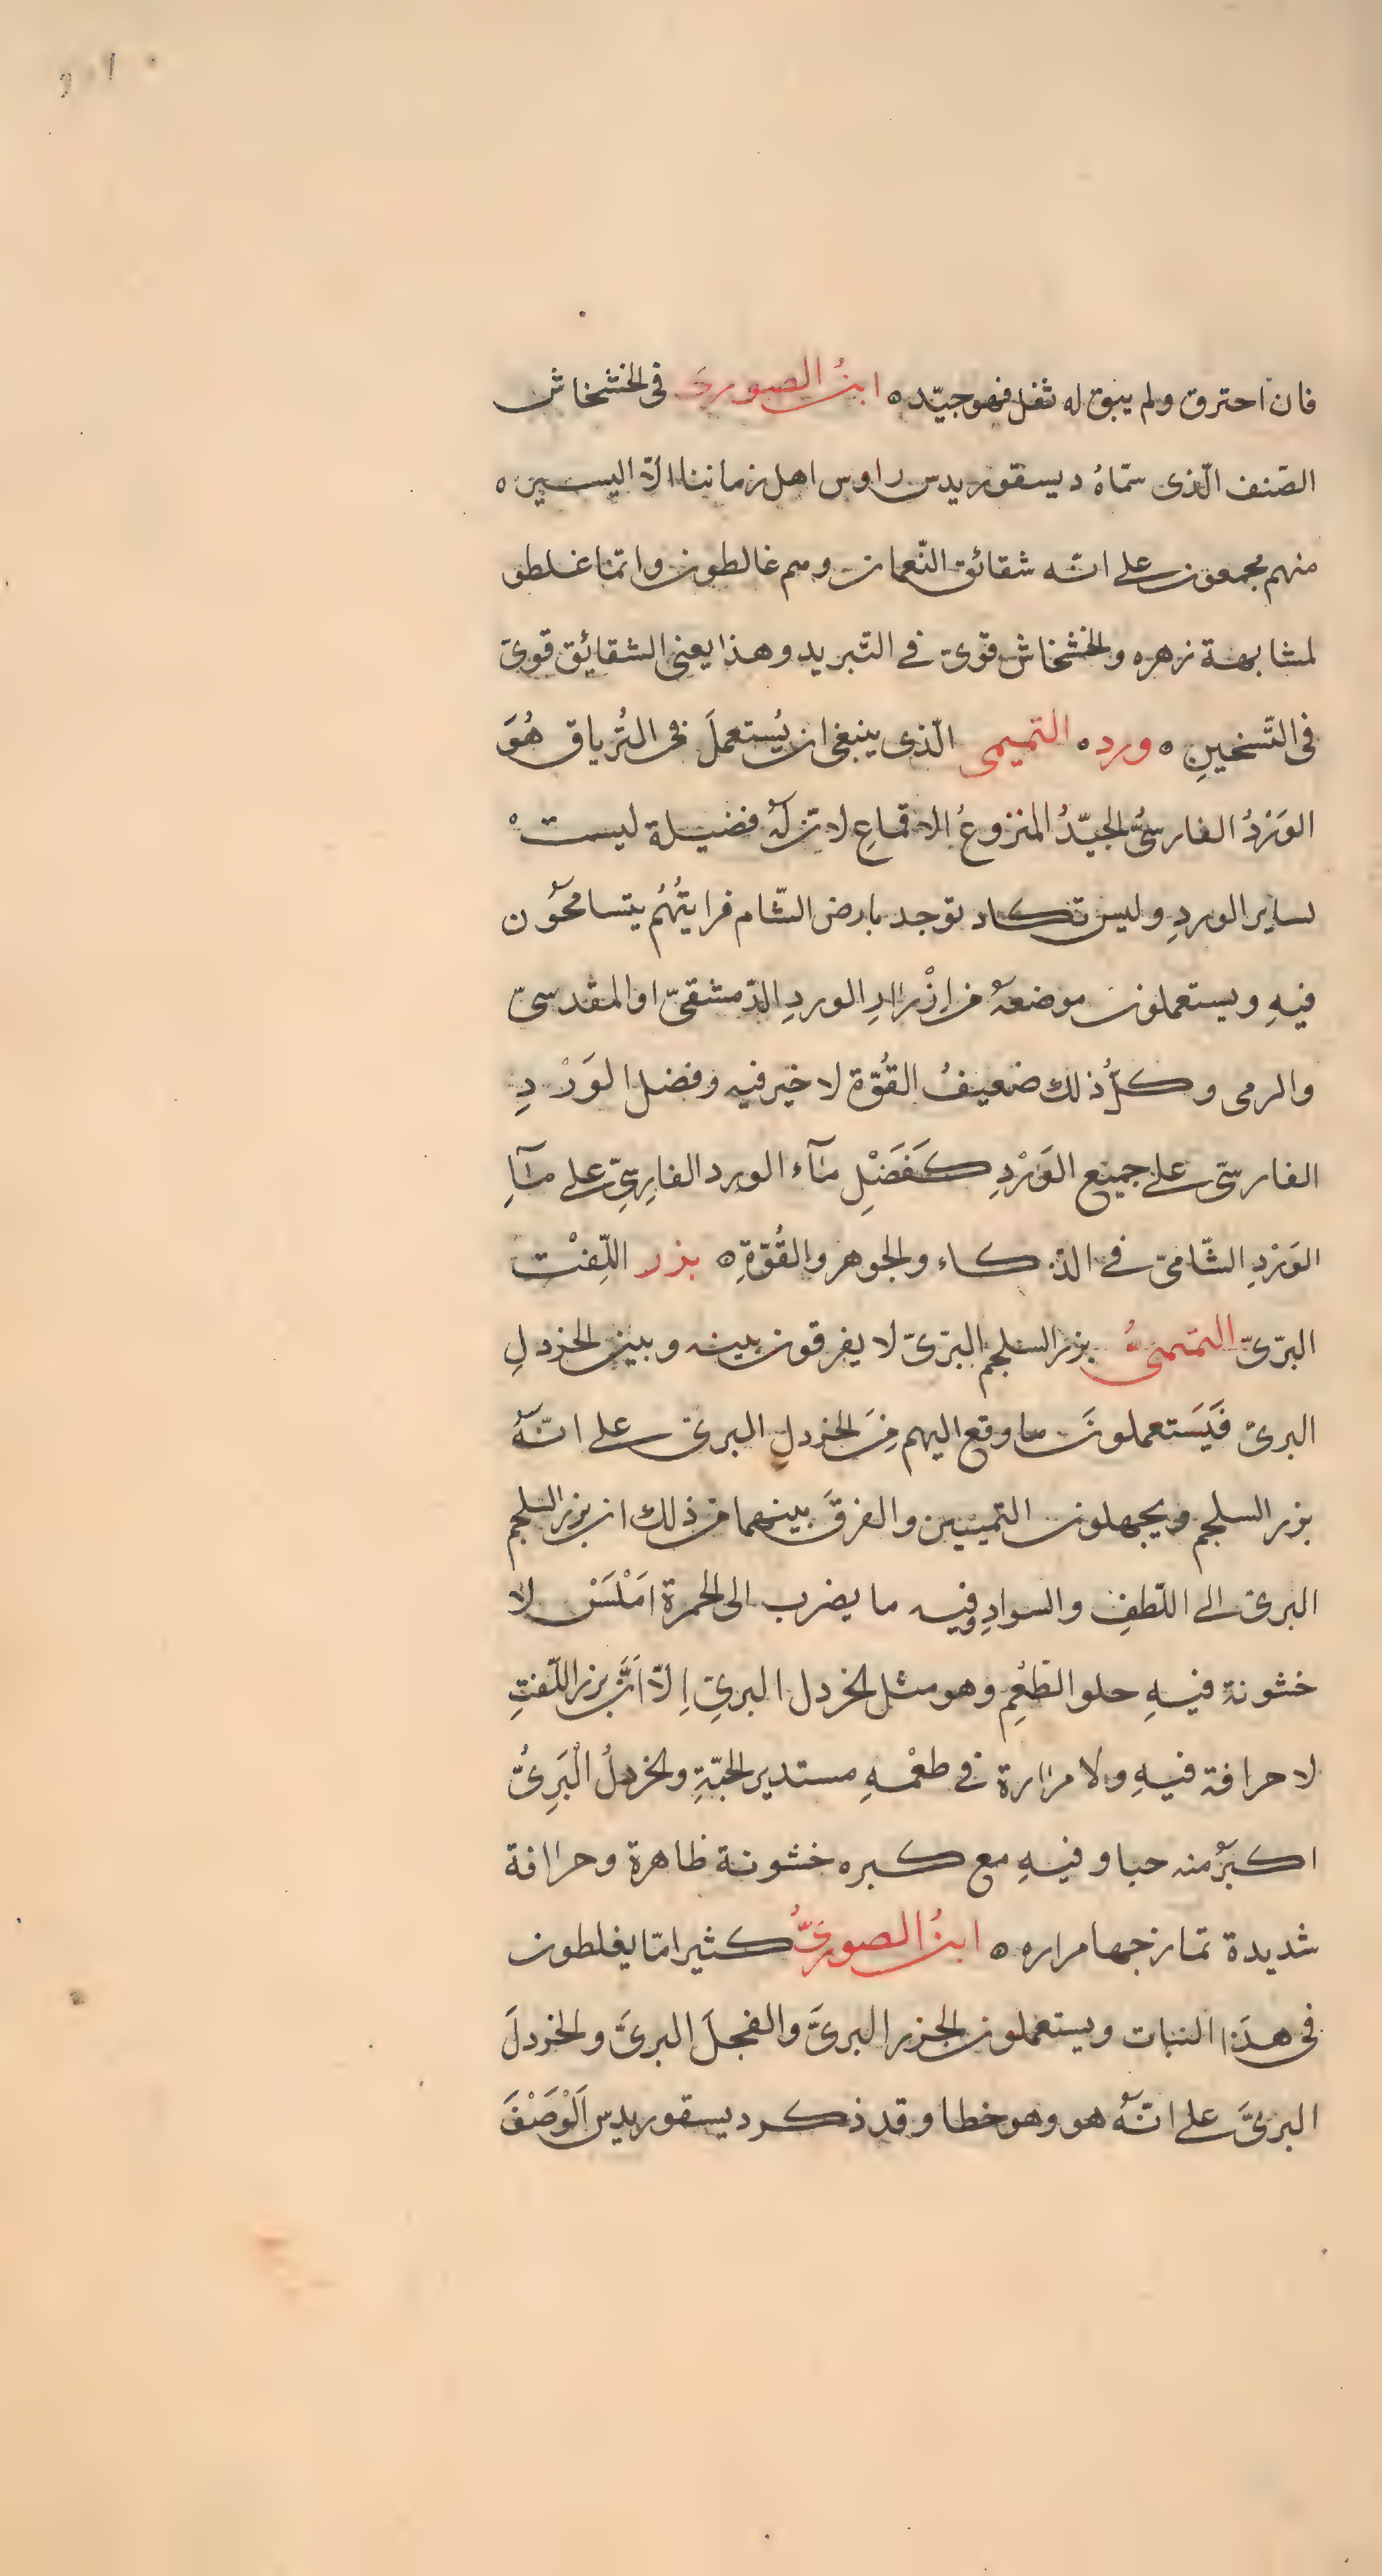 فان احترق ولم يبق له ثفل فهو جيّد ه ابنُ الصورى فى الخشخاش
الصّنف الّذى سمّاهُ ديسقوريدس راوس اهل زماننا الاّ اليسير ه
منهم مجمعون على انّه شقائق النّعمان وهم غالطون وانّما غلطو
لمشابهة زهره والخشخاش قوىّ فى التّبريد وهذا يعنى الشقائق قوىّ
فى التّسخينِ ه ورد ه التميمى الّذى ينبغى ان يُستعملَ فى التُرياق هُوَ
الوَرْدُ الفارسىُّ الجيّدُ المنزوعُ الاقماعِ لانّ لهُ فضيلة ليستْ
لساير الوردِ وليس تكاد توجد بارض الشّام فرايتُهُم يتسامحُون
فيهِ ويستعملون موضعهُ من ازْرارِ الوردِ الدّمشقىّ او المقدسىّ
والرمى وكلُّ ذلك ضعيفُ القُوّة لا خير فيه وفضل الوَرْدِ
الفارسىّ على جميع الوَرْدِ كَفَضْلِ مآء الورد الفارِسِىّ على مآءِ
الوَرْدِ الشّامىّ فى الذّكاء والجوهر والقُوّةِ ه بذر اللِّفْت
البرّىّ التميمىُ بزر السلجم البرّىّ لا يفرقون بينه وبين الخردلِ
البرىّ فَيَستعملونَ ما وقع اليهم مِنَ الخردلِ البرىّ على انّهُ
بزر السلجم ويجهلون التميين والفرقَ بينهما من ذلك ان بزر السلجم
البرىّ الى اللّطفِ والسوادِ وفيه ما يضرب الى الحمرة امْلَسَْ لا
خشونة فيهِ حلو الطَّعْمِ وهو مثل الخردل البرىِّ اِلاّ اَنَّ بزر اللّفتِ
لا حرافة فيهِ ولا مرارة فى طعْمهِ مستدير الحبّةِ والخردلُ الْبَرِىُّ
اكبرُ منه حبا وفيهِ مع كبره خشونة ظاهرة وحرافة
شديدة تمازجها مراره ه ابنُ الصورىُّ كثيرا مّا يغلطون
فى هذا النبات ويستعملون الجزر البرىَّ والفجلَ البرىَّ والخردلَ
البرىَّ على انّهُ هو وهو خطا وقد ذكر ديسقوريدس اَلْوَصْفَ